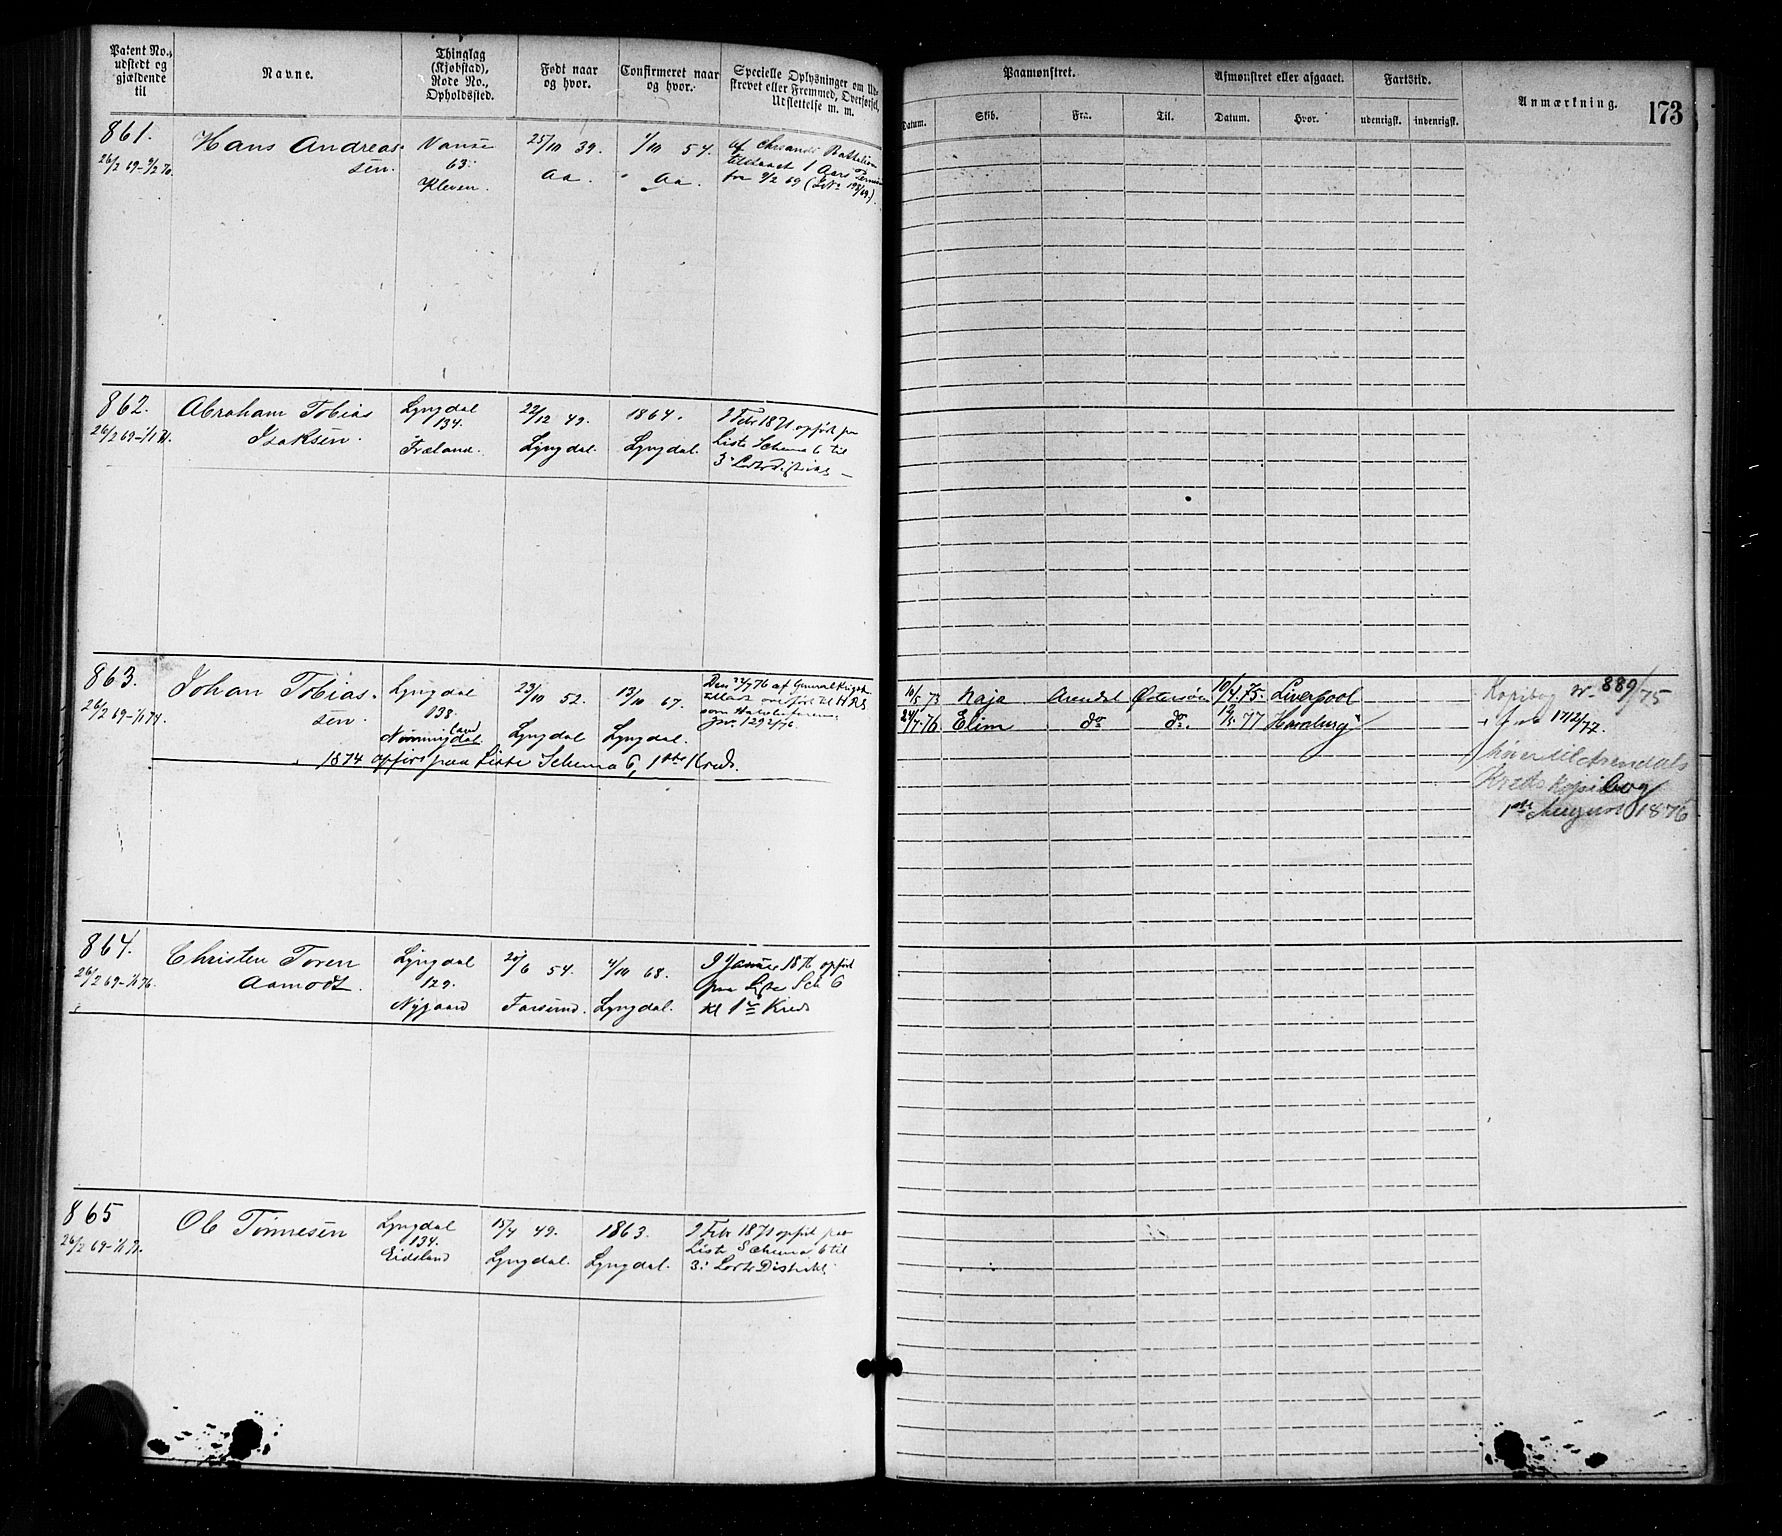 Patent No.,
udstedt og
gjældende
til
Navne.
Thinglag
(Kjøbstad),
Rode No.,
Opholdssted.
Født naar
og hvor.
Confirmeret naar
og hvor.
Specielle Oplysninger om Ud-
skrevet eller Fremmed, Overførsel,
Udslettelse m. m.
Paamønstret.
Afmønstret eller afgaaet.
Fartstid.
Anmærkning.
173
Datum.
Skib.
Fra.
Til.
Datum.
Hvor.
udenrigsk.
indenrigsk.
861.
26/2 69-9/2 70.
Hans Andreas-
sen.
Vanse
63.
Kleven.
25/10 39.
Aa.
1/10 54.
Aa.
af Chrsands Bataillon
tilstaaet 1 Aars
fra 9/2 69
862.
26/2 69-1/1 71.
Abraham Tobias
Isaksen.
Lyngdal
134.
Fræland.
22/12 49.
Lyngdal.
1864.
Lyngdal.
I Febr 1871 opført paa
Liste Schema 6 til
3. Lods Distrikt
863.
26/2 69-1/1 74.
Johan Tobias-
sen.
Lyngdal
138.
23/10 52.
Lyngdal
13/10 67.
Lyngdal.
Den 22/7 76 af
1874 opført paa Liste Schema 6, 1ste Kreds.
16/5 73
Naja
Arendal
Østersøn
10/4 75.
Liverpool
Kopibog No 889/75
24/7 76
Elim
do
do.
77
Hamburg
1712/77.
hører til Arendals
Kreds kopibog
1ste August 1876
864.
26/2 69-1/1 76.
Christen Toren
Aamodt.
Lyngdal
129.
Nygaard
20/6 54.
Farsund.
4/10 68.
Lyngdal.
I Januar 1876 opført
paa Liste Sch 6
til 1ste Kreds
865
26/2 69-1/1 71.
Ole Tønnesen
Lyngdal
134.
Eidsland
15/4 49.
Lyngdal.
1863.
Lyngdal.
I Febr 1871 opført paa
Liste Schema 6 til
3. Lods Distrikt